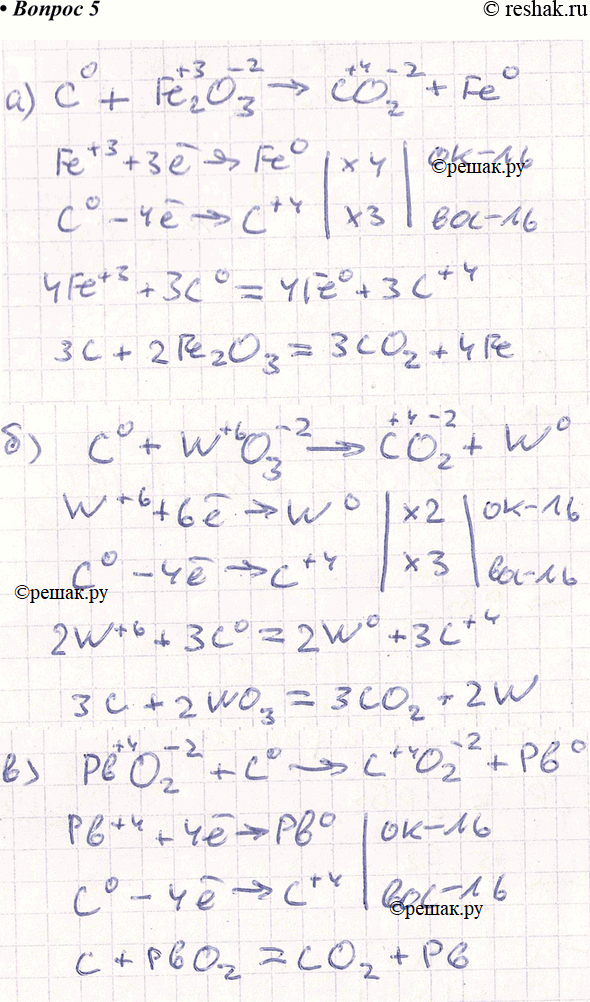 • Вопрос 5
© reshak.ru
а) C⁰ + Fe₂⁺³O₃⁻² → C⁺⁴O₂⁻² + Fe⁰
Fe⁺³ + 3ē → Fe⁰ | x4 | ок-ль
©решак.ру
C⁰ - 4ē → C⁺⁴ | x3 | вос-ль
4Fe⁺³ + 3C⁰ = 4Fe⁰ + 3C⁺⁴
3C + 2Fe₂O₃ = 3CO₂ + 4Fe
б) C⁰ + W⁺⁶O₃⁻² → C⁺⁴O₂⁻² + W⁰
W⁺⁶ + 6ē → W⁰ | x2 | ок-ль
C⁰ - 4ē → C⁺⁴ | x3 | вос-ль
©решак.ру
2W⁺⁶ + 3C⁰ = 2W⁰ + 3C⁺⁴
3C + 2WO₃ = 3CO₂ + 2W
в) Pb⁺⁴O₂⁻² + C⁰ → C⁺⁴O₂⁻² + Pb⁰
Pb⁺⁴ + 4ē → Pb⁰ | ок-ль
C⁰ - 4ē → C⁺⁴ | вос-ль
©решак.ру
C + PbO₂ = CO₂ + Pb